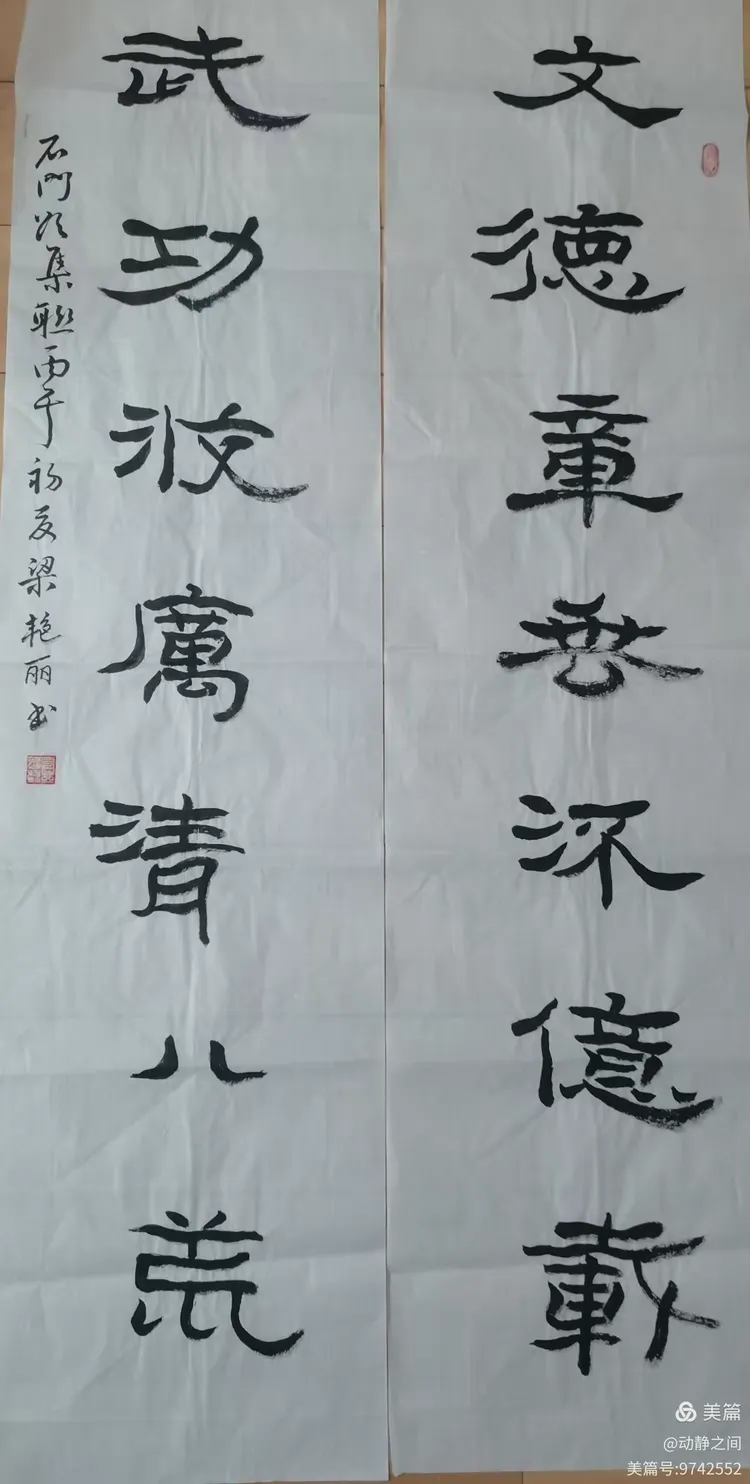 文德章億載
武功厲清八荒
石門頌集联丙午初夏梁艳丽书
美篇
@动静之间
美篇号:9742552